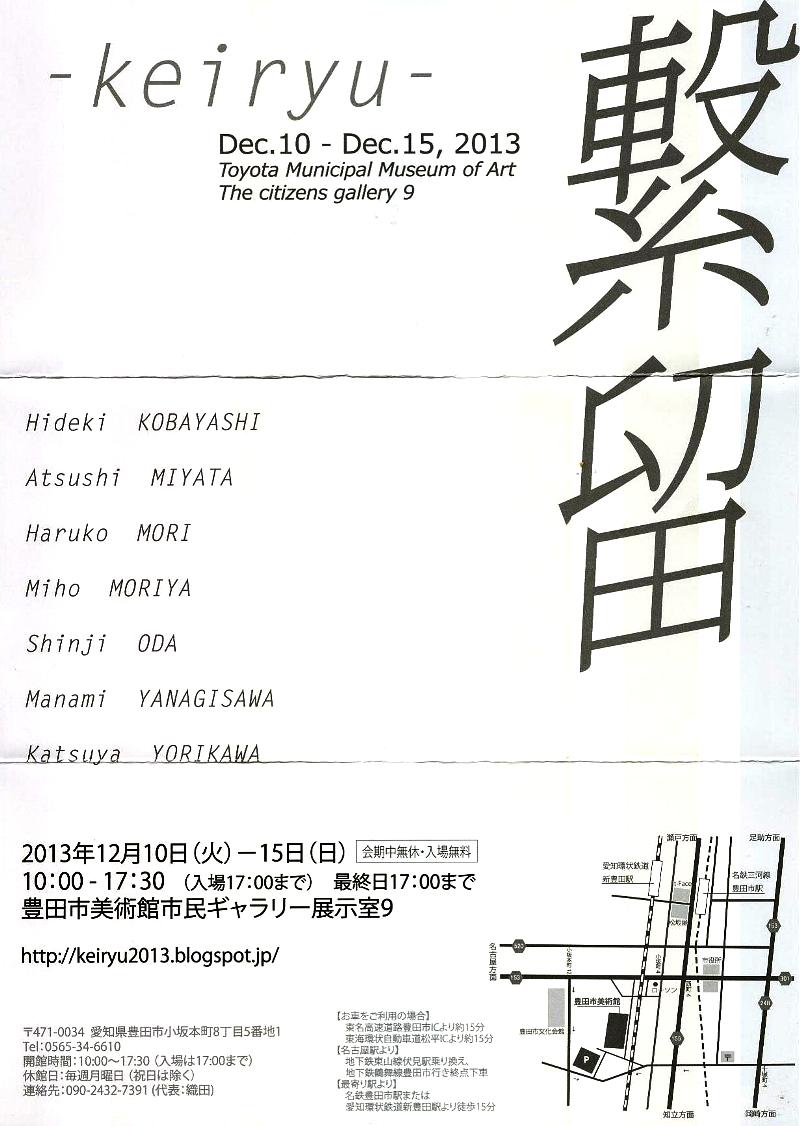 -keiryu-
繋留
Dec.10 - Dec.15, 2013
Toyota Municipal Museum of Art
The citizens gallery 9
Hideki KOBAYASHI
Atsushi MIYATA
Haruko MORI
Miho MORIYA
Shinji ODA
Manami YANAGISAWA
Katsuya YORIKAWA
2013年12月10日(火)－15日(日) 会期中無休・入場無料
10:00 - 17:30 (入場17:00まで) 最終日17:00まで
豊田市美術館市民ギャラリー展示室9
http://keiryu2013.blogspot.jp/
〒471-0034 愛知県豊田市小坂本町8丁目5番地1
Tel:0565-34-6610
開館時間:10:00～17:30 (入場は17:00まで)
休館日:毎週月曜日 (祝日は除く)
連絡先:090-2432-7391 (代表:織田)
【お車をご利用の場合】
東名高速道路豊田市ICより約15分
東海環状自動車道松平ICより約15分
【名古屋駅より】
地下鉄東山線伏見駅乗り換え、
地下鉄鶴舞線豊田市行き終点下車
【最寄り駅より】
名鉄豊田市駅または
愛知環状鉄道新豊田駅より徒歩15分
瀬戸方面
足助方面
愛知環状鉄道
新豊田駅
名鉄三河線
豊田市駅
t-Face
松坂屋
153
名古屋方面
520
153
301
市役所
ローソン
豊田市美術館
豊田市文化会館
248
155
P
知立方面
岡崎方面